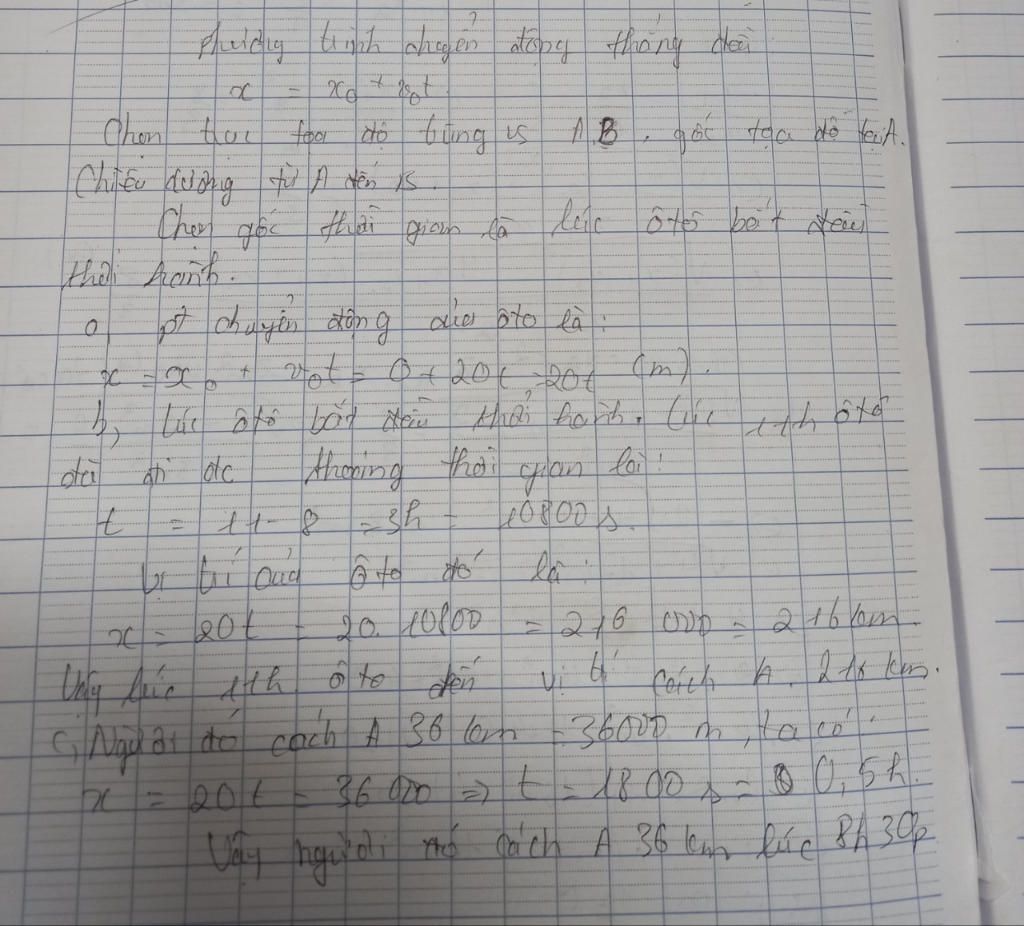 Phương trình chuyển động thẳng đều
x = x₀ + v₀t
Chọn trục tọa độ trùng vs AB. gốc tọa độ tại A.
Chiều dương từ A đến B.
Chọn gốc thời gian là lúc ôtô bắt đầu
khởi hành.
a, pt chuyển động của ôtô là:
x = x₀ + v₀t = 0 + 20t = 20t (m).
b, lúc ôtô bắt đầu khởi hành. lúc 11h ôtô
đã đi đc khoảng thời gian là:
t = 11 - 8 = 3h = 10800s.
Vị trí của ôtô đó là:
x = 20t = 20. 10800 = 216 000 = 216 km
Vậy lúc 11h ôtô đến vị trí cách A. 216 km.
c, Người đó cách A 36 km = 36000 m, ta có:
x = 20t = 36 000 => t = 1800 s = 0,5h.
Vậy người đó cách A 36 km lúc 8h30p